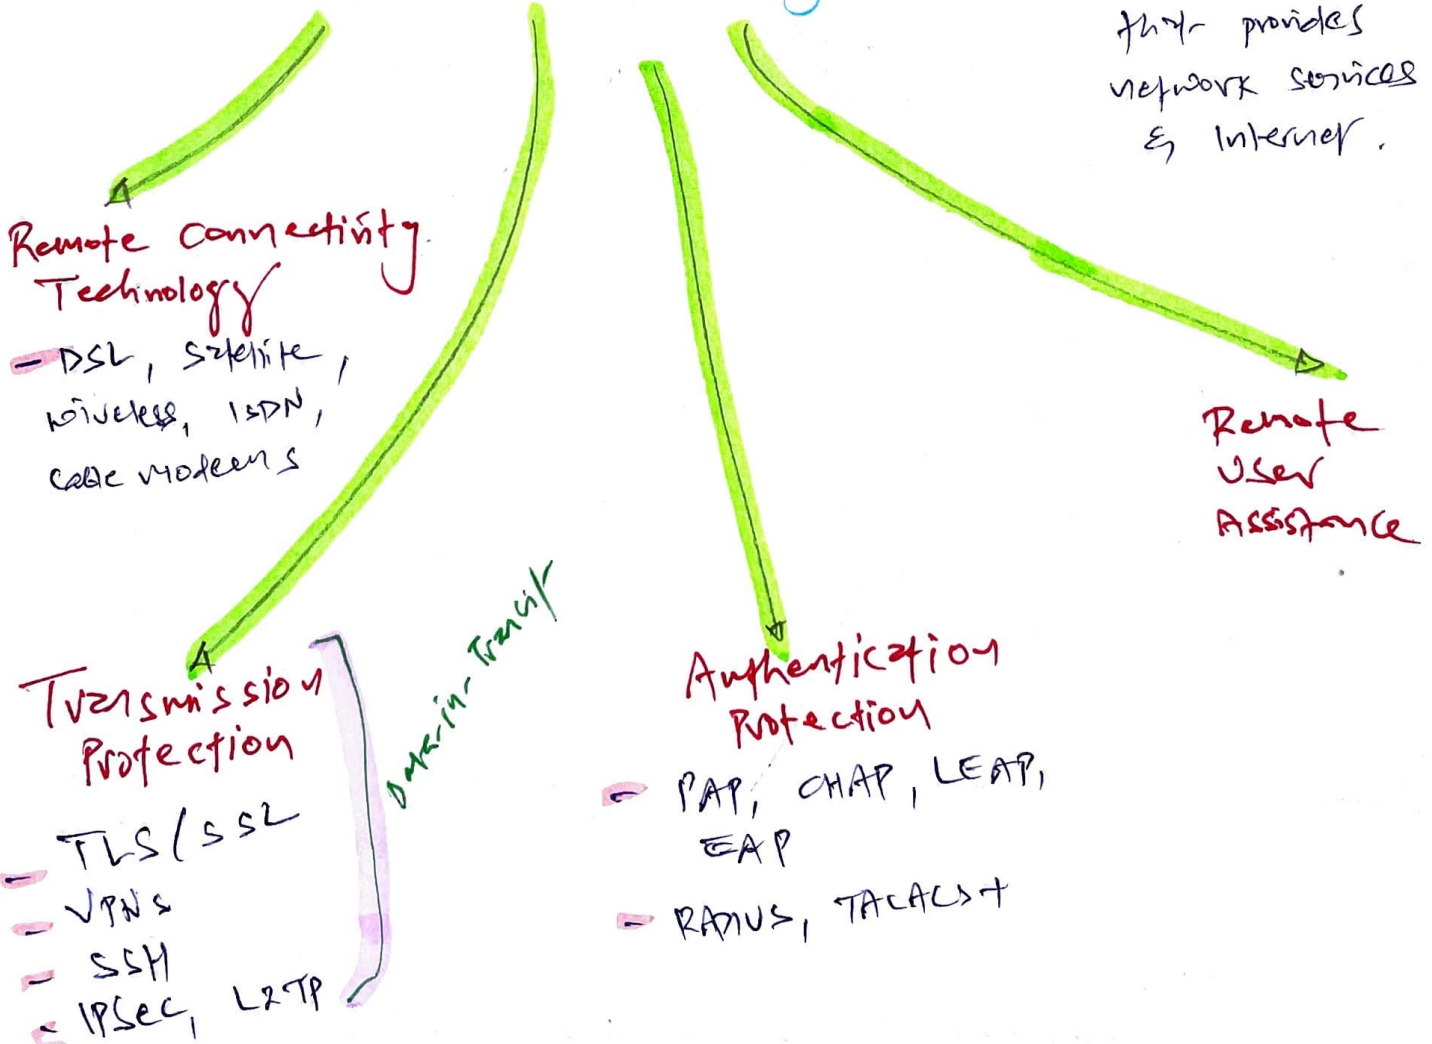 that provides
network services
& Internet.
Remote Connectivity
Technology
- DSL, Satellite,
wireless, ISDN,
cable modems
Remote
User
Assistance
Data-in-Transit
Transmission
Protection
- TLS/SSL
- VPNs
- SSH
- IPSec, L2TP
Authentication
Protection
- PAP, CHAP, LEAP,
EAP
- RADIUS, TACACS+